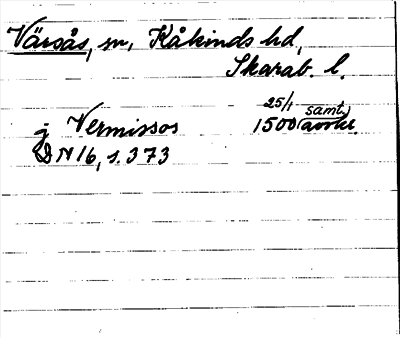 Värsås, sn, Kåkinds hd,
Skarab. l.
25/1 samt.
j Vermissos 1500 (avskr.
DN 16, s. 373